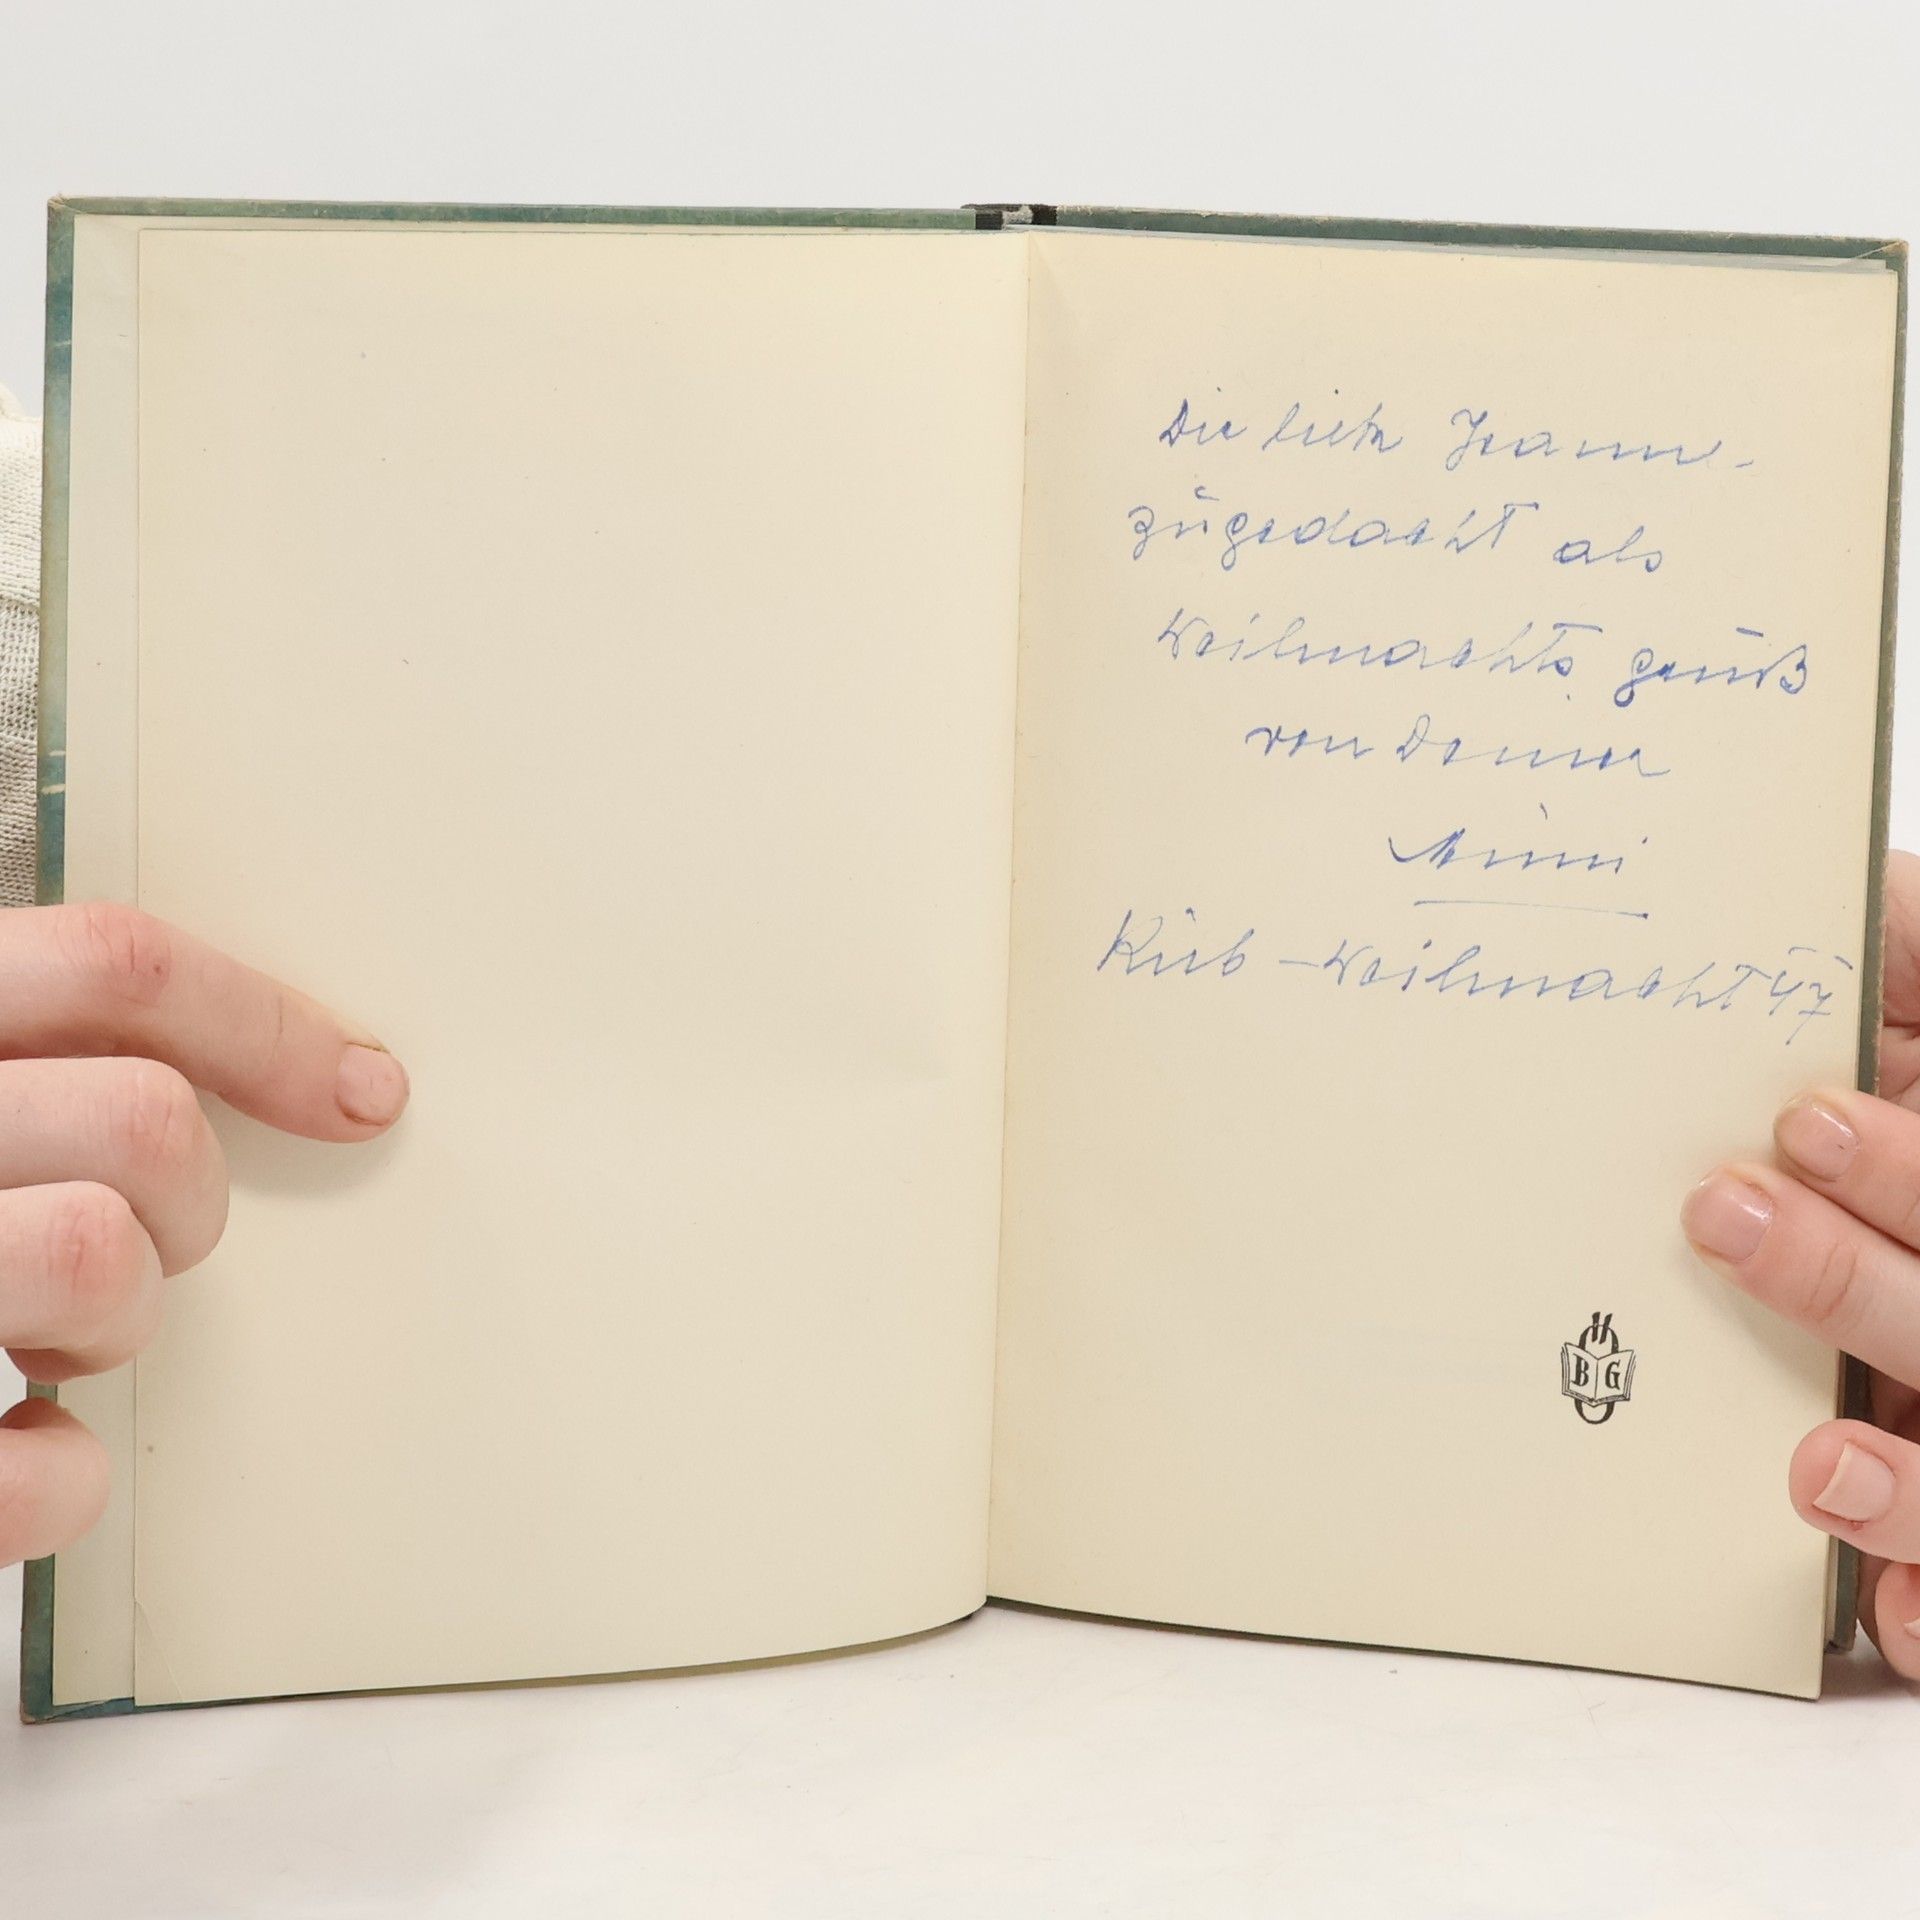 Dir liebe Jeanne
zugedacht als
Weihnachts gruß
von Deiner
Mimi
Küb - Weihnacht 47
B G